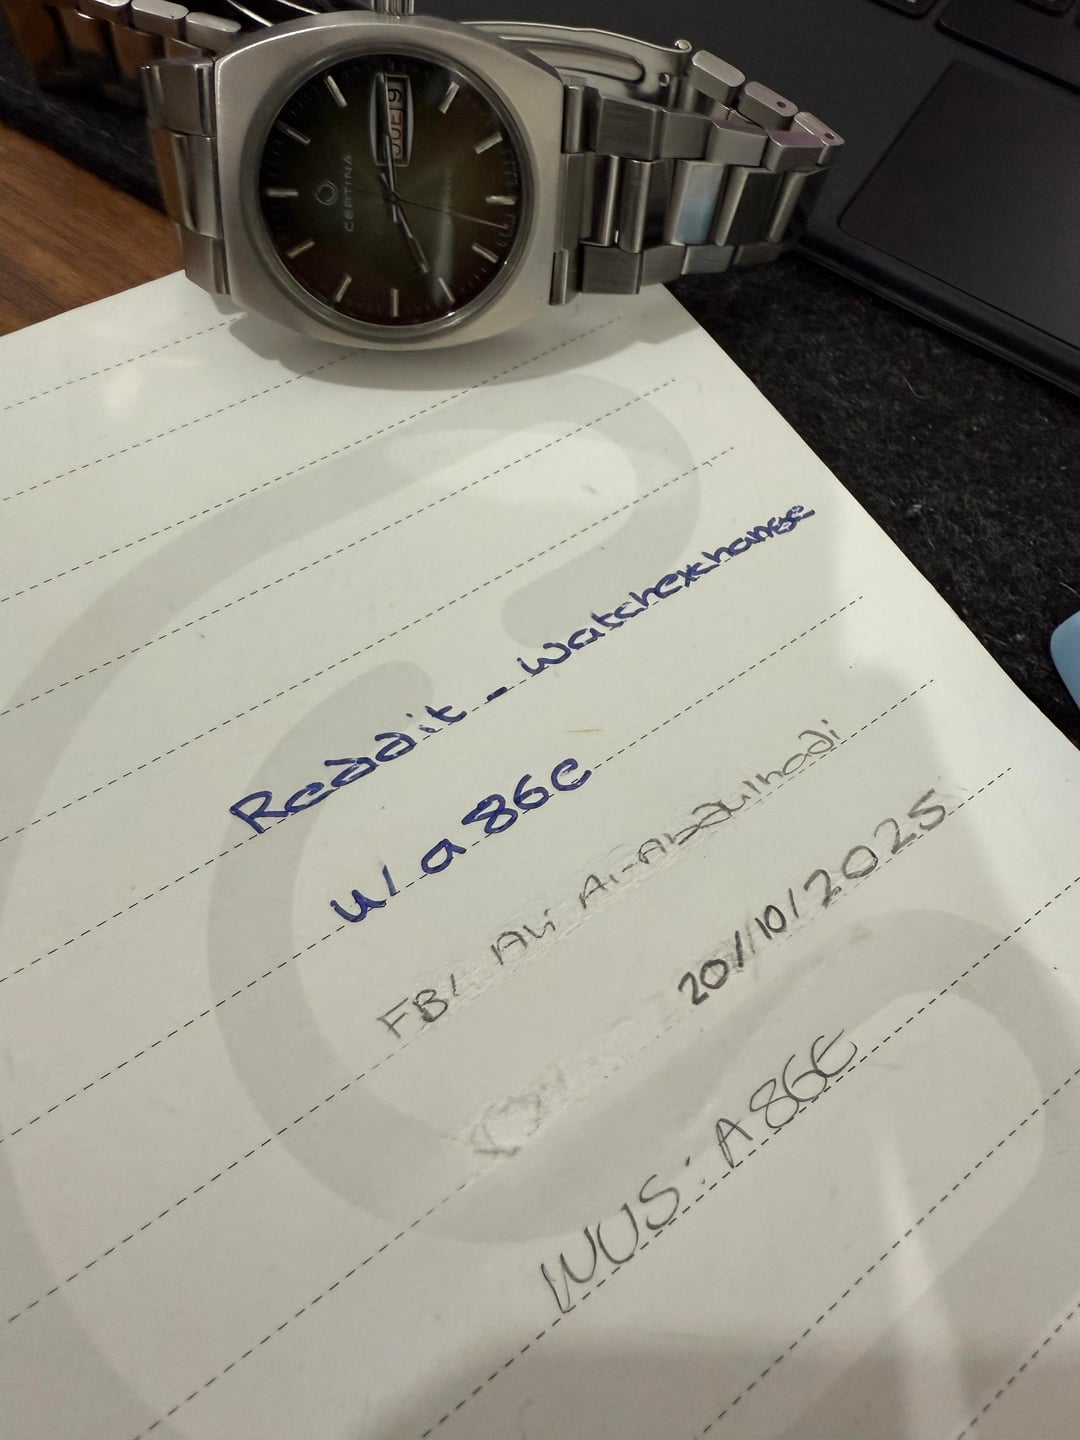 CERTINA
TUE 9
Reddit - watchexchange
u/a86e
FB/ Ali Al-Abdulhadi
20/10/2025
WUS: A86E